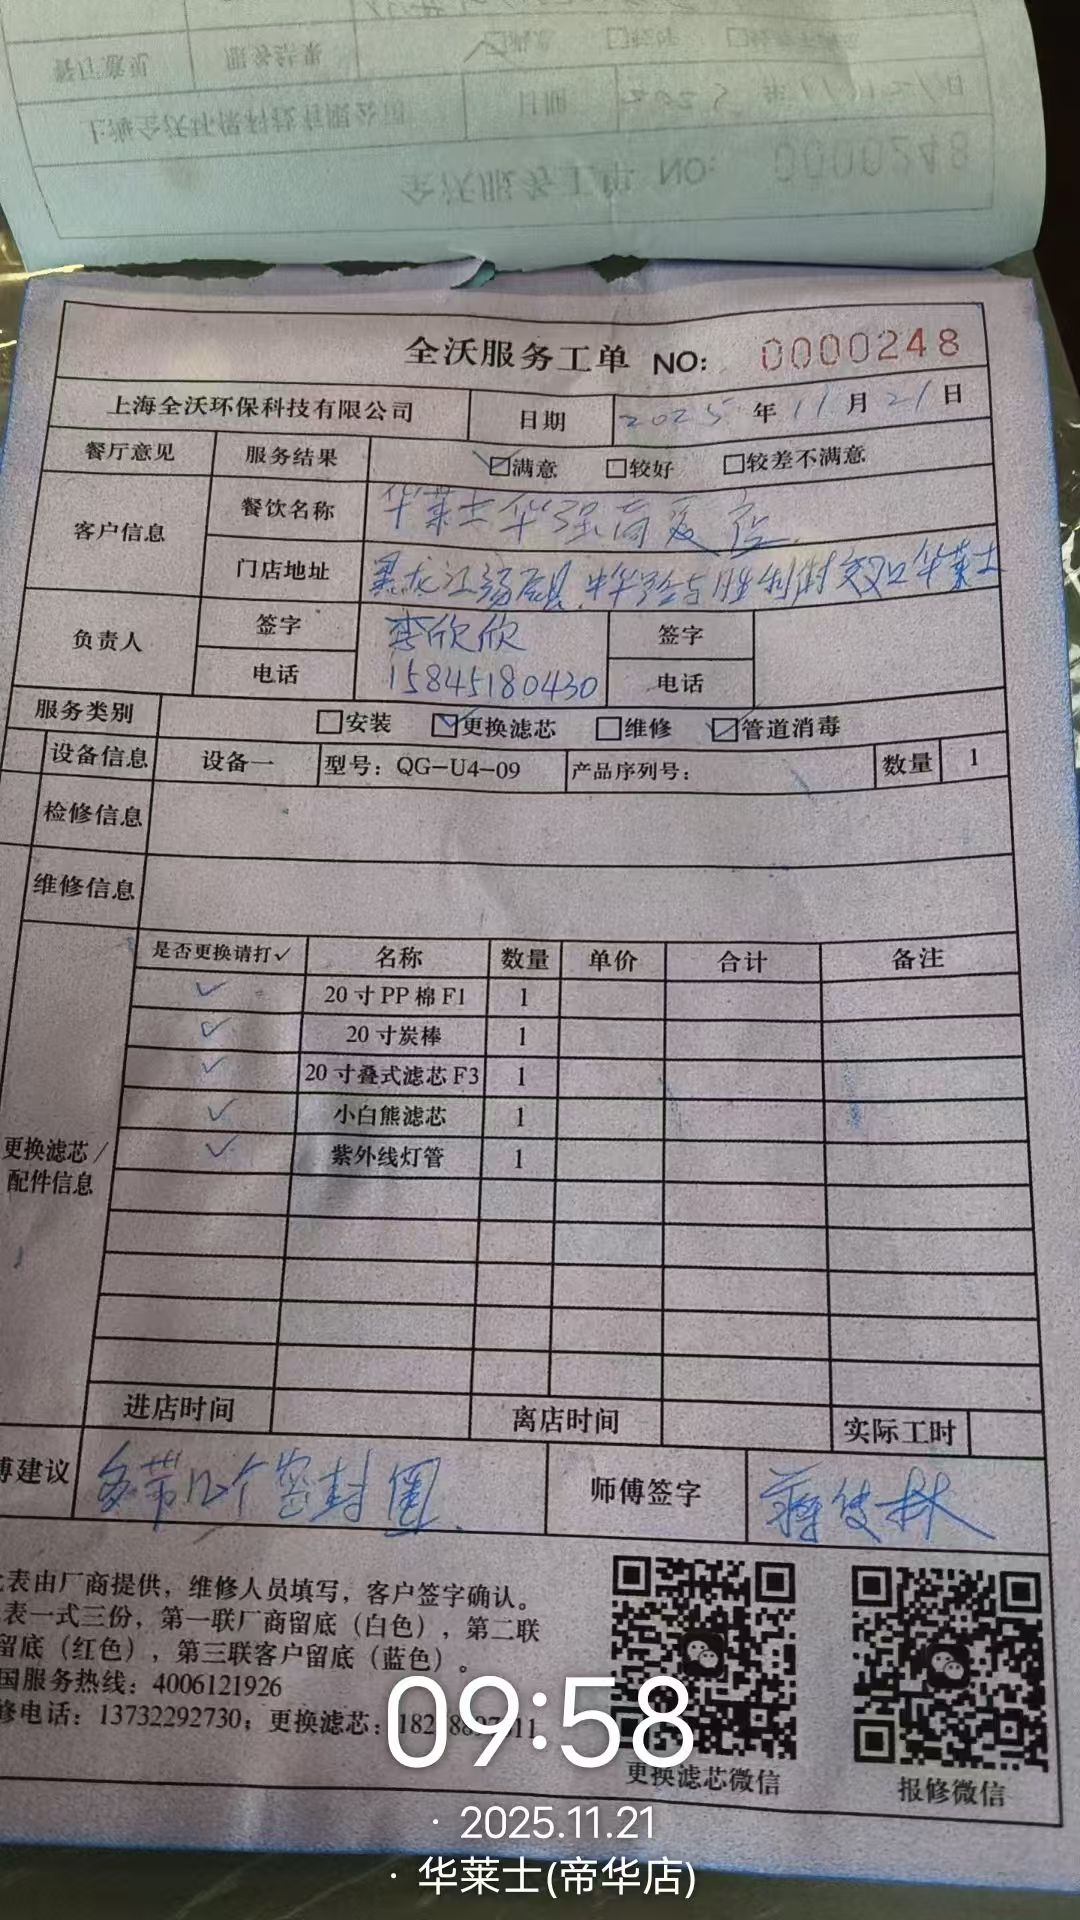 全沃服务工单 NO: 0000248
上海全沃环保科技有限公司 日期 2025 年 11 月 21 日
餐厅意见 服务结果 ☑满意 □较好 □较差不满意
客户信息 餐饮名称 华莱士华强商厦店
门店地址 黑龙江 中华路与胜利街交叉口华莱士
负责人 签字 李欣欣 签字
电话 15845180430 电话
服务类别 □安装 ☑更换滤芯 □维修 ☑管道消毒
设备信息 设备一 型号：QG-U4-09 产品序列号： 数量 1
检修信息
维修信息
更换滤芯/配件信息
是否更换请打✓ 名称 数量 单价 合计 备注
✓ 20寸PP棉F1 1
✓ 20寸炭棒 1
✓ 20寸叠式滤芯F3 1
✓ 小白熊滤芯 1
✓ 紫外线灯管 1
进店时间 离店时间 实际工时
傅建议 多带几个密封圈. 师傅签字 蒋俊林
表由厂商提供，维修人员填写，客户签字确认。
表一式三份，第一联厂商留底（白色），第二联
留底（红色），第三联客户留底（蓝色）。
国服务热线：4006121926
修电话：13732292730；更换滤芯：
更换滤芯微信 报修微信
09:58
· 2025.11.21
· 华莱士(帝华店)